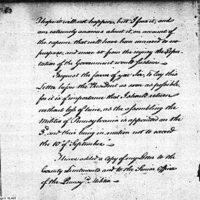 I hope it will not happen, but I fear it, and
am extremely anxious about it, on account of
the expence that will have been incurred to no
purpose, and more so from the injury the Repu-
tation of the Government would sustain.
I request the favor of you Sir, to lay this
Letter before the President as soon as possible,
for it is of importance that I should return
without loss of time, as the assembling the
Militia of Pennsylvania is appointed on the
3d. and their being in motion not to exceed
the 10th of September.
I have added a Copy of my letter to the
County Lieutenants and to the Senior Officer
of the Militia